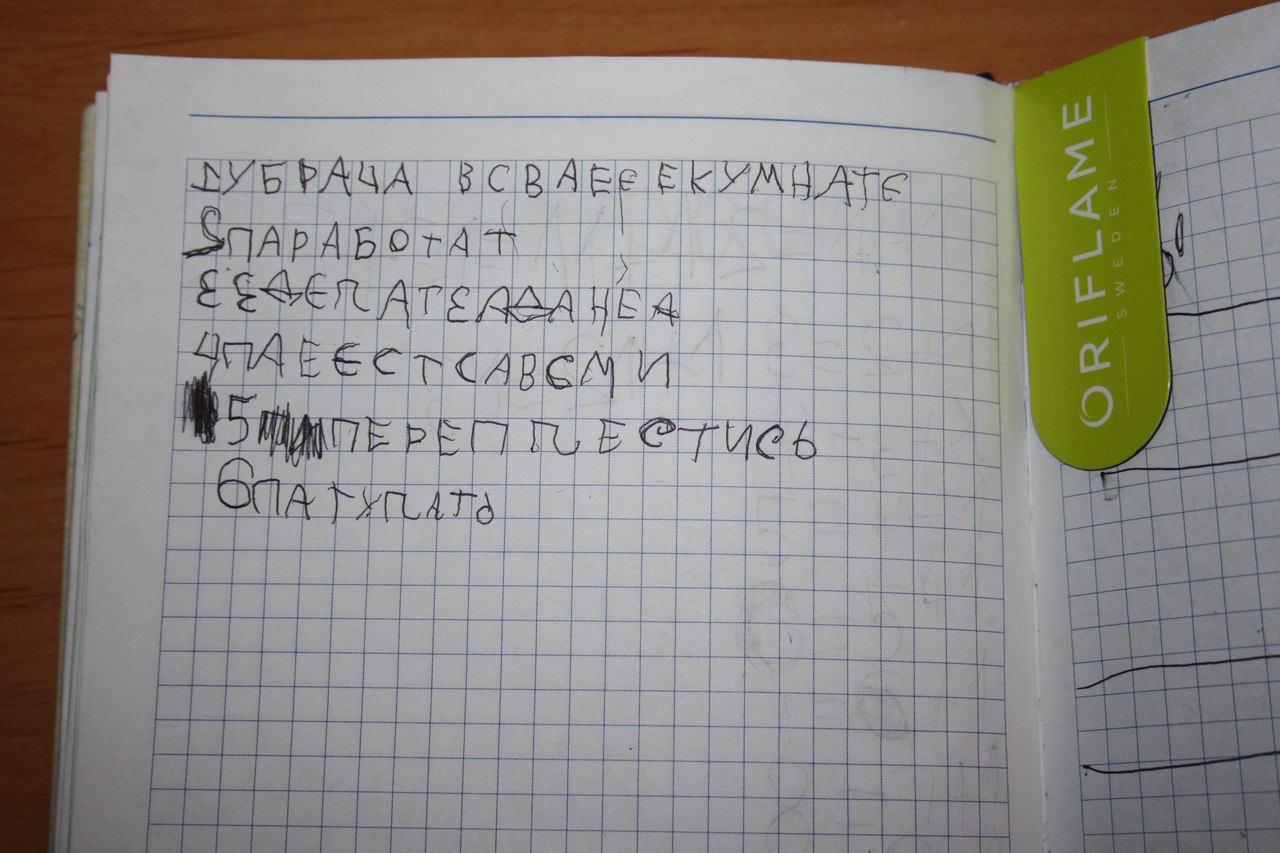 1УБРАЦА ВСВАЕЕЕКУМНАТЕ
2ПАРАБОТАТ
3 ЗДЕПАТЕАДАНЕА
4ПАЕЕСТСАВЕМИ
5 ПЕРЕППЕСТИСЬ
6ПАТУПАТЬ
ORIFLAME
SWEDEN